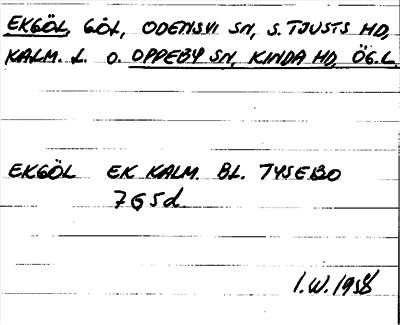 EKGÖL, GÖL, ODENSVI SN, S. TJUSTS HD,
KALM. L. O. OPPEBY SN, KINDA HD, ÖG. L.
EKGÖL EK KALM. BL. TYSEBO
7G5d
I.W. 1958